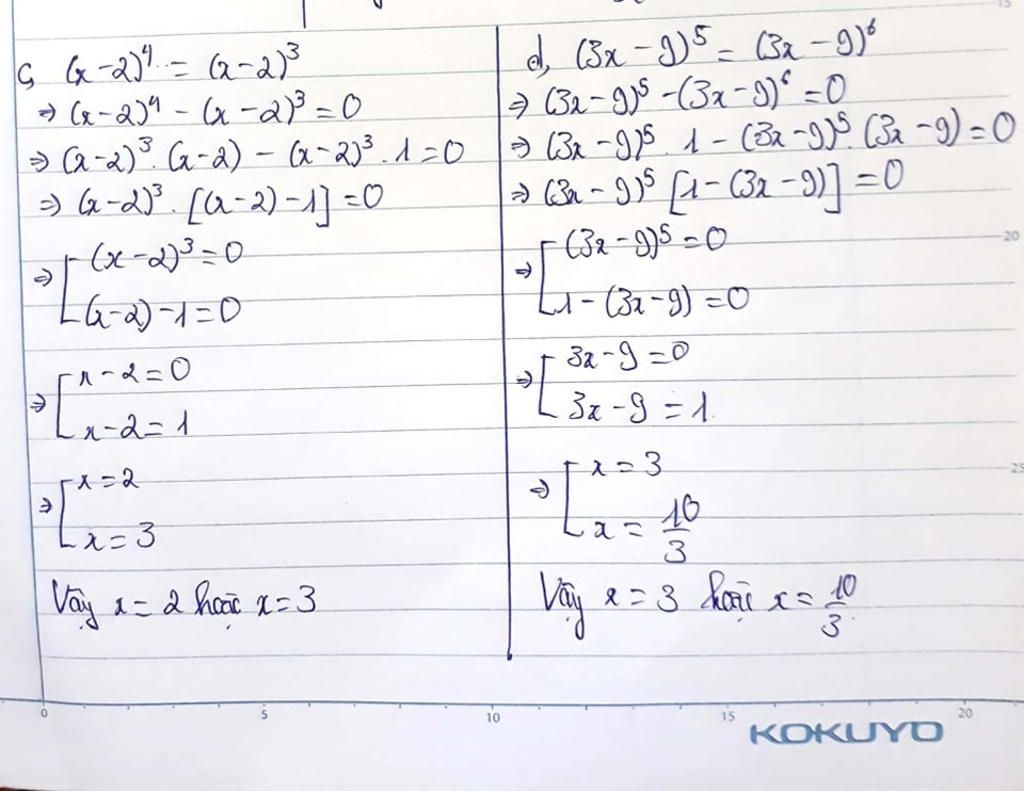 c, (x-2)⁴ = (x-2)³
⇒ (x-2)⁴ - (x-2)³ = 0
⇒ (x-2)³ . (x-2) - (x-2)³ . 1 = 0
⇒ (x-2)³ . [(x-2) - 1] = 0
⇒ [ (x-2)³ = 0
(x-2) - 1 = 0
⇒ [ x - 2 = 0
x - 2 = 1
⇒ [ x = 2
x = 3
Vậy x = 2 hoặc x = 3
d, (3x - 9)⁵ = (3x - 9)⁶
⇒ (3x - 9)⁵ - (3x - 9)⁶ = 0
⇒ (3x - 9)⁵ . 1 - (3x - 9)⁵ . (3x - 9) = 0
⇒ (3x - 9)⁵ [1 - (3x - 9)] = 0
⇒ [ (3x - 9)⁵ = 0
1 - (3x - 9) = 0
⇒ [ 3x - 9 = 0
3x - 9 = 1
⇒ [ x = 3
x = 10/3
Vậy x = 3 hoặc x = 10/3
15
20
25
0 5 10 15 20
KOKUYO